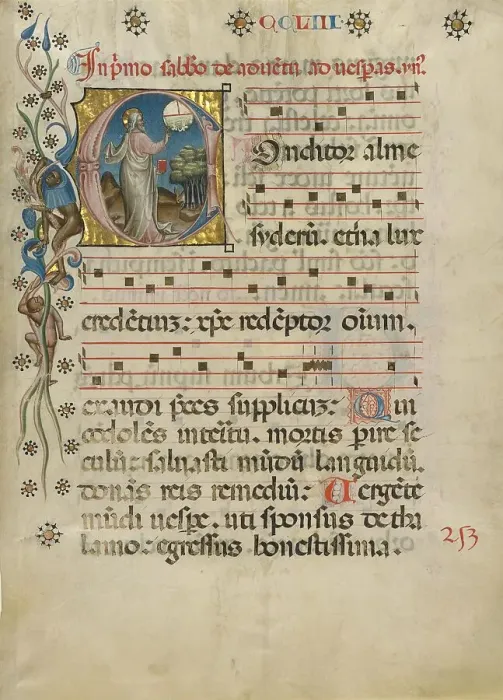 CCLIII
In p̄mo sabb̄o de aduētu ad uesp̄as. yn̄.
Conditor alme
syderū. et̄na lux
credētiuz: xp̄e redēptor oīum.
exaudi p̄ces supplicuz: Qui
cōdolēs interitu. mortis p̄ire se
culū: saluasti mūdū languidū.
donās reis remediū: Uergēte
mūdi uesp̄e. uti sponsus de tha
lamo. egressus honestissima.
253